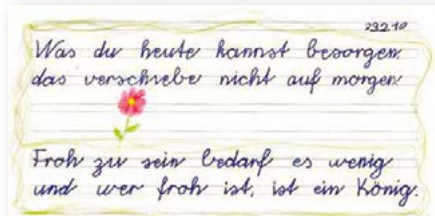 29.9.10
Was du heute kannst besorgen,
das verschiebe nicht auf morgen
Froh zu sein bedarf es wenig
und wer froh ist, ist ein König.